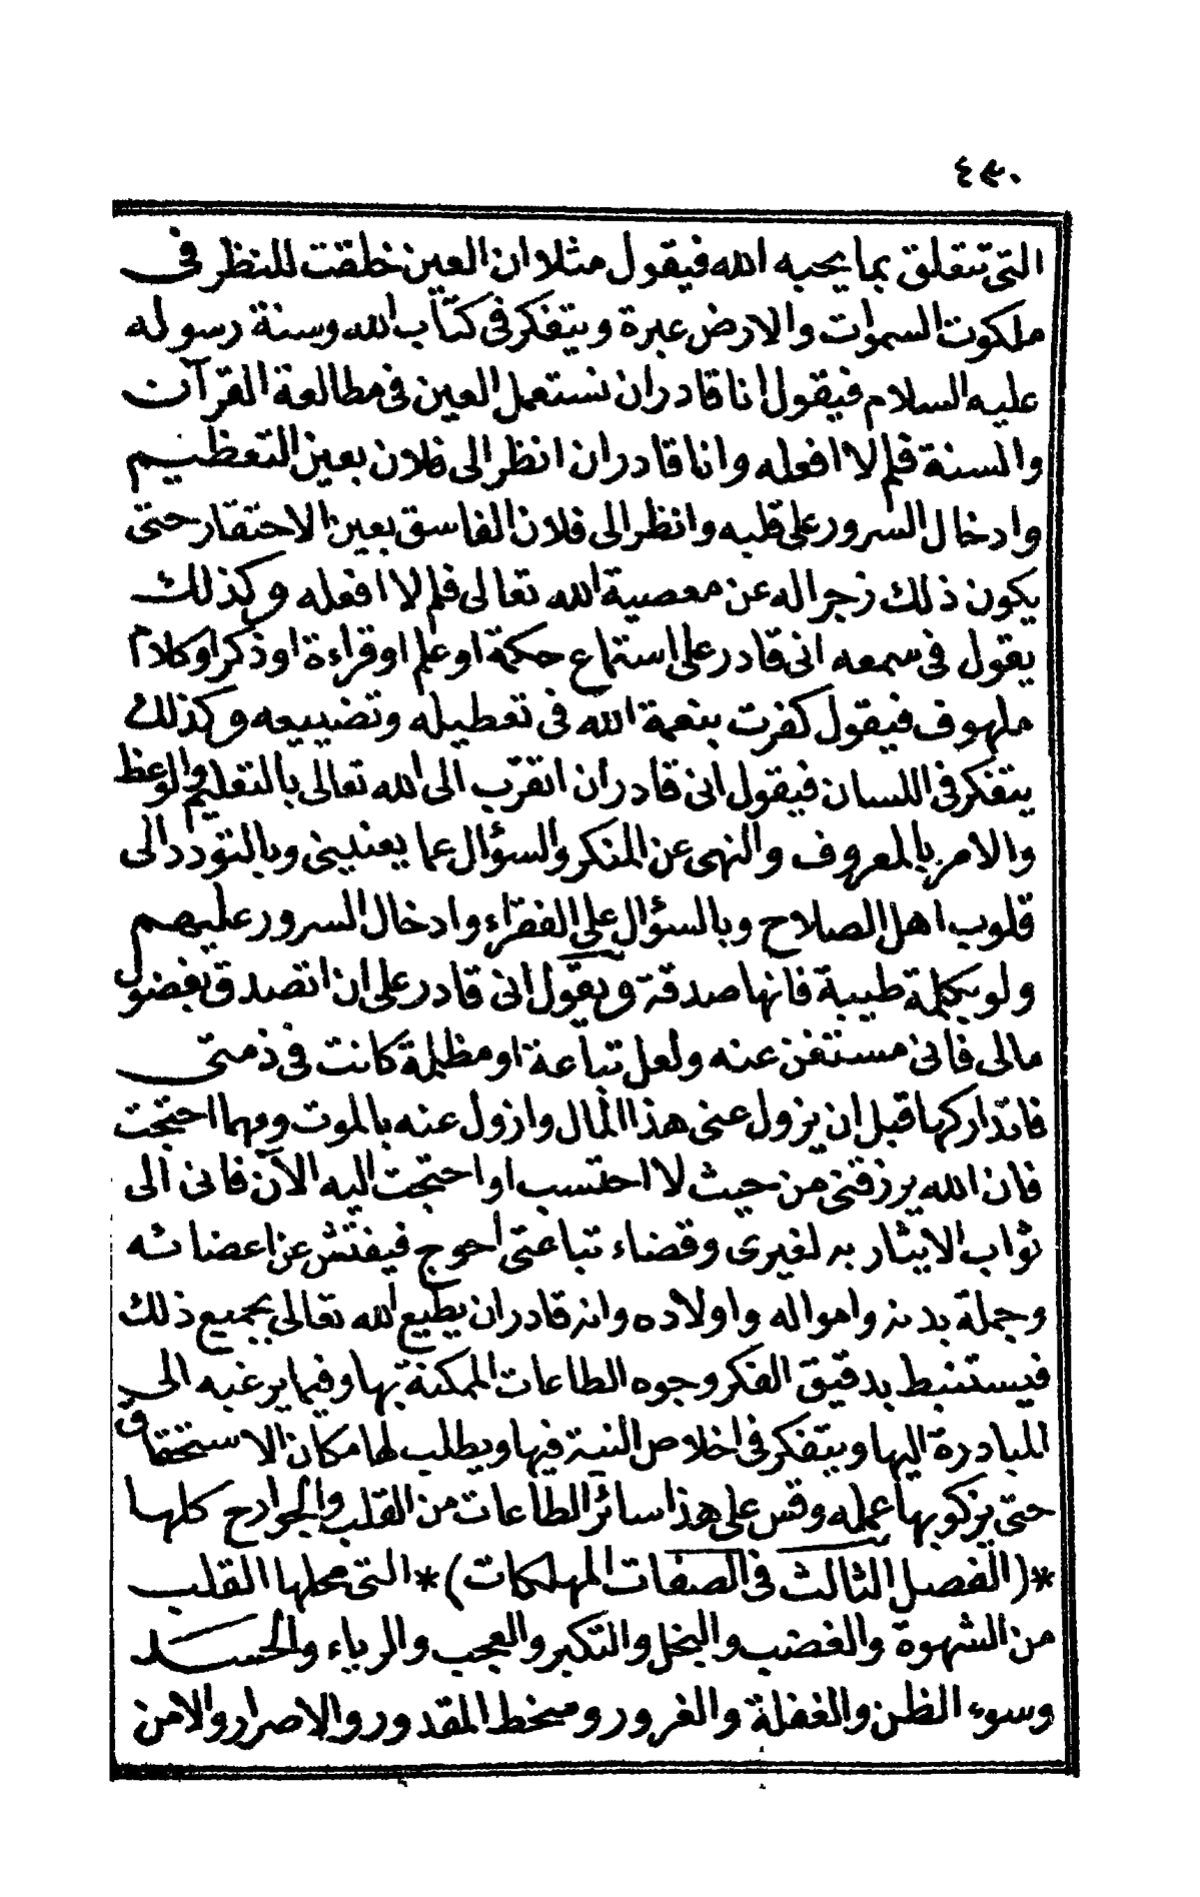 التى تتعلق بما يحبه الله فيقول مثلا ان العين خلقت للنظر فى
ملكوت السموات والارض عبرة ويتفكر فى كتاب الله وسنة رسوله
عليه السلام فيقول انا قادر ان نستعمل العين فى مطالعة القرآن
والسنة فلم لا افعله وانا قادر ان انظر الى فلان بعين التعظيم
وادخال السرور على قلبه وانظر الى فلان الفاسق بعين الاحتقار حتى
يكون ذلك زجرا له عن معصية الله تعالى فلم لا افعله وكذلك
يقول فى سمعه انى قادر على استماع حكمة او علم او قراءة او ذكر او كلام
ملهوف فيقول كفرت بنعمة الله فى تعطيله وتضييعه وكذلك
يتفكر فى اللسان فيقول انى قادر ان اتقرّب الى الله تعالى بالتعليم والوعظ
والامر بالمعروف والنهى عن المنكر والسؤال عما يعنينى وبالتودد الى
قلوب اهل الصلاح وبالسؤال على الفقراء وادخال السرور عليهم
ولو بكلمة طيبة فانها صدقة ويقول انى قادر على ان اتصدق بفضول
مالى فانى مستغن عنه ولعل تباعة او مظلمة كانت فى ذمتى
فاتداركها قبل ان يزول عنى هذا المال وازول عنه بالموت ومهما احتجت
فان الله يرزقنى من حيث لا احتسب او احتجت اليه الآن فانى الى
ثواب الايثار به لغيرى وقضاء تباعتى احوج فيفتش عن اعضائه
وجملة بدنه وامواله واولاده وانه قادر ان يطيع الله تعالى بجميع ذلك
فيستنبط بدقيق الفكر وجوه الطاعات الممكنة بها وفيما يرغبه الى
المبادرة اليها ويتفكر فى اخلاص النية فيها ويطلب لها مكان الاستحقاق
حتى يزكو بها عمله وقس على هذا سائر الطاعات من القلب والجوارح كلها
*(الفصل الثالث فى الصفات المهلكات)* التى محلها القلب
من الشهوة والغضب والبخل والتكبر والعجب والرياء والحسد
وسوء الظن والغفلة والغرور وسخط المقدور والاصرار والامن